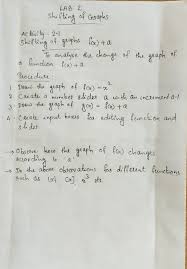 LAB 2
Shifting of Graphs
Activity 2.1
Shifting of graphs f(x) + a
To analyse the change of the graph of
a function f(x) + a
Procedure
1 Draw the graph of f(x) = x²
2 Create a number slider a with an increment 0.1
3 Draw the graph of g(x) = f(x) + a
4 Create input boxes for editing function and
slider
→ Observe how the graph of f(x) changes
according to 'a'
→ Do the above observations for different functions
such as |x| [x], e^x